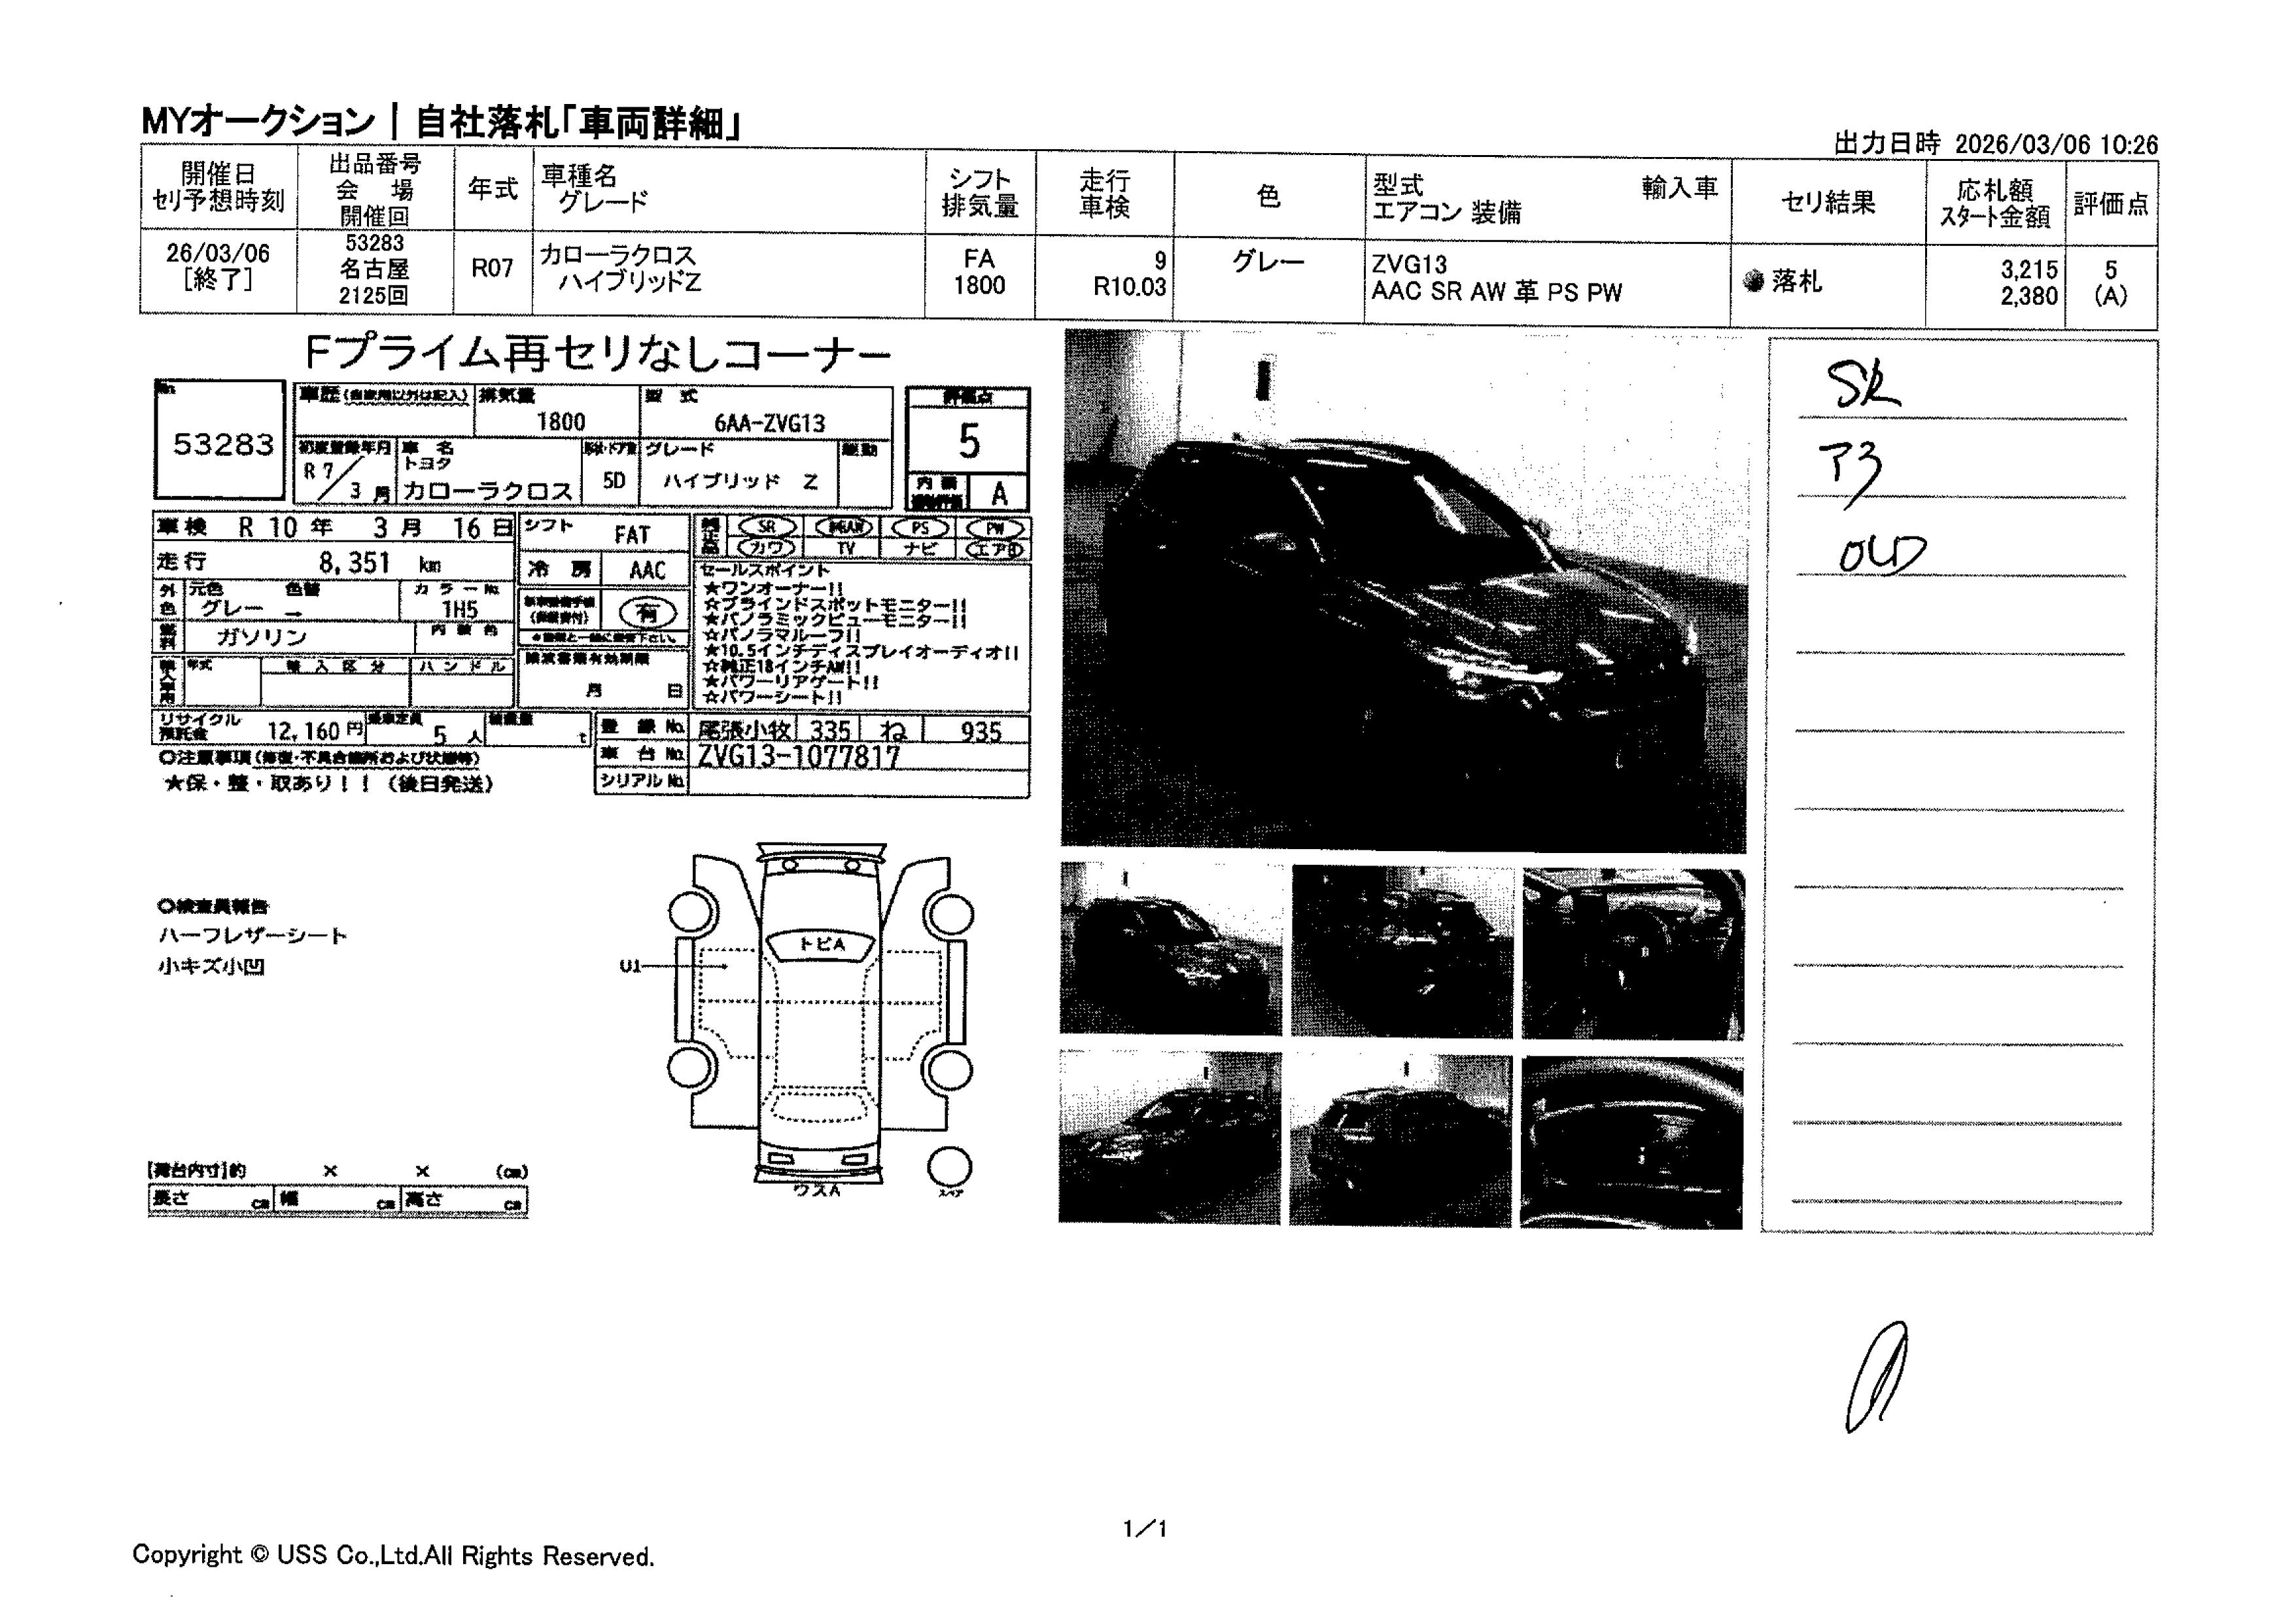 MYオークション | 自社落札「車両詳細」
出力日時 2026/03/06 10:26
開催日
セリ予想時刻
出品番号
会 場
開催回
年式
車種名
グレード
シフト
排気量
走行
車検
色
型式 輸入車
エアコン 装備
セリ結果
応札額
スタート金額
評価点
26/03/06
[終了]
53283
名古屋
2125回
R07
カローラクロス
ハイブリッドZ
FA
1800
9
R10.03
グレー
ZVG13
AAC SR AW 革 PS PW
落札
3,215
2,380
5
(A)
Fプライム再セリなしコーナー
No.
53283
車歴(自家用以外は記入)
排気量
1800
型 式
6AA-ZVG13
評価点
5
初度登録年月
R 7/3 月
車 名
トヨタ
カローラクロス
形状・ドア数
5D
グレード
ハイブリッド Z
駆動
内装
A
車検 R 10 年 3 月 16 日
シフト FAT
SR PS PW
カワ TV ナビ エアB
走行 8,351 km
冷 房 AAC
外色
元色 色替
グレー →
カラーNo.
1H5
有
燃料
ガソリン
内装色
年式 輸入区分 ハンドル
譲渡書類有効期限
月 日
セールスポイント
★ワンオーナー!!
☆ブラインドスポットモニター!!
★パノラミックビューモニター!!
☆パノラマルーフ!!
★10.5インチディスプレイオーディオ!!
☆純正18インチAW!!
★パワーリアゲート!!
☆パワーシート!!
リサイクル
預託金 12,160 円
乗車定員 5 人
積載量 t
登 録 No. 尾張小牧 335 ね 935
車 台 No. ZVG13-1077817
シリアル No.
〇注意事項(修復・不具合箇所および状態等)
★保・整・取あり!!(後日発送)
〇検査員報告
ハーフレザーシート
小キズ小凹
トビA
U1
ウスA
スペア
[荷台内寸]約 × × (cm)
長さ cm 幅 cm 高さ cm
SR
ア3
OLD
1/1
Copyright © USS Co.,Ltd.All Rights Reserved.